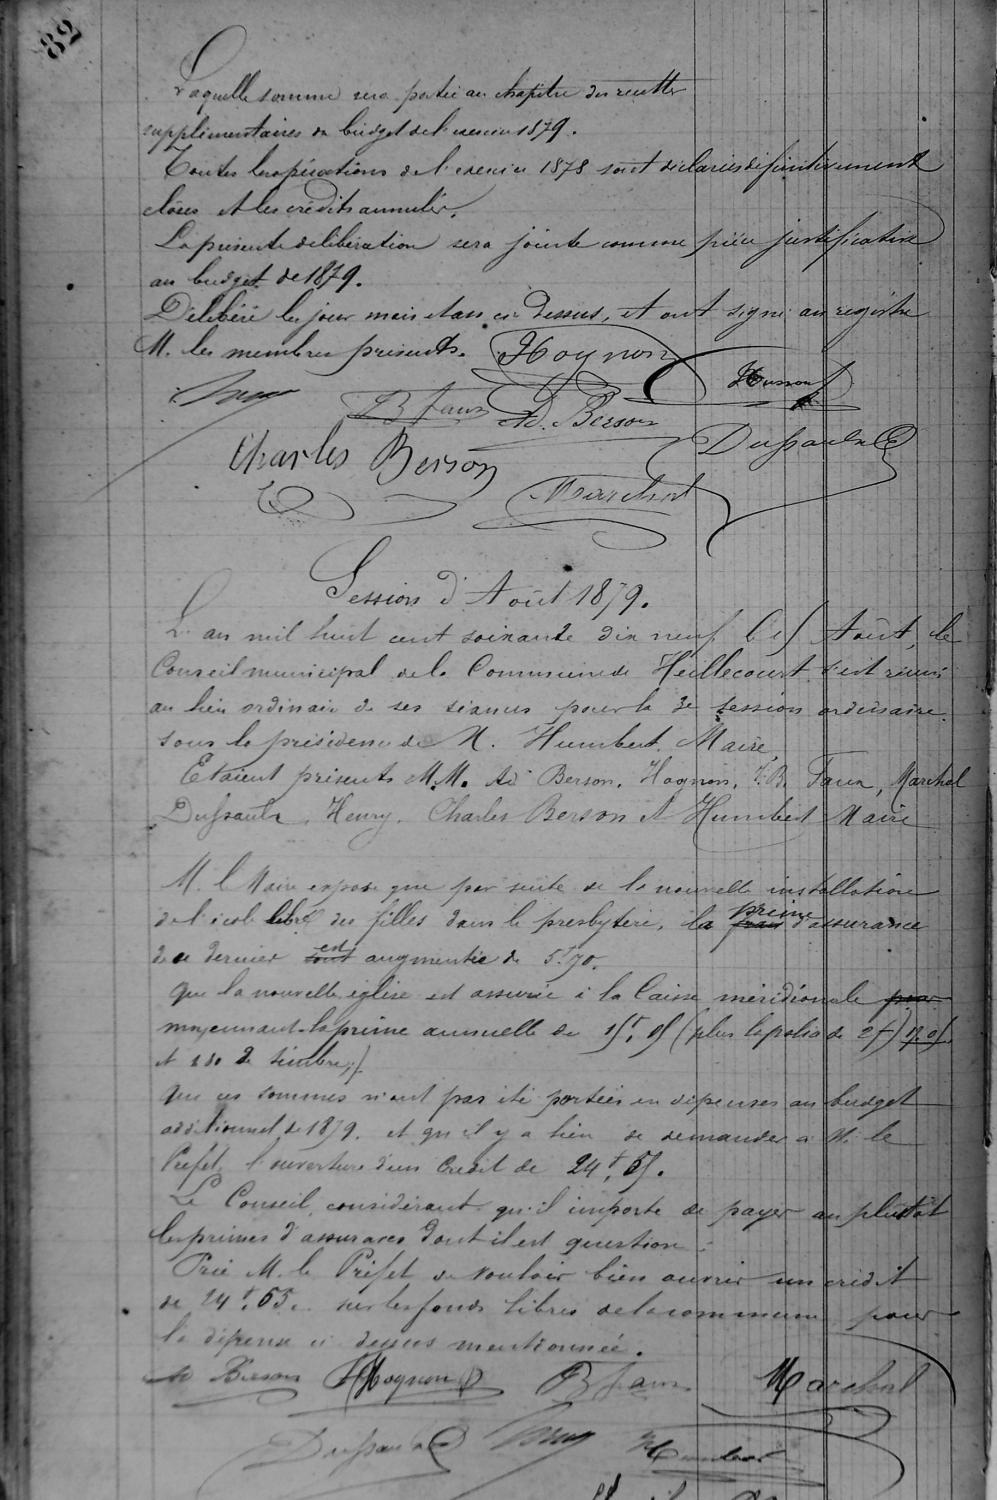 82
Laquelle somme sera portée au chapitre des recettes
supplémentaires du budget de l'exercice 1879.
Toutes les opérations de l'exercice 1878 sont déclarées définitivement
closes et les crédits annulés.
La présente délibération sera jointe comme pièce justificative
au budget de 1879.
Délibéré les jour mois et an ci dessus, et ont signé au registre
M. les membres présents. Hognon
Husson
B Faux Ad. Berson
Charles Berson Dussaulx
Marchal
Session d'Août 1879.
L'an mil huit cent soixante dix neuf le 15 Août, le
Conseil municipal de la Commune de Heillecourt s'est réuni
au lieu ordinaire de ses séances pour la 3e session ordinaire
sous la présidence de M. Humbert, Maire
Etaient présents M.M. Ad Berson, Hognon, J.B. Faux, Marchal
Dussaulx, Henry, Charles Berson et Humbert Maire
M. le Maire expose que par suite de la nouvelle installation
de l'école libre des filles dans le presbytère, la prime frais d'assurance
de ce dernier est sont augmentée de 5f,70.
Que la nouvelle église est assurée à la Caisse méridionale pour
moyennant la prime annuelle de (plus la police de 2f)
et de timbre)
Que ces sommes n'ont pas été portées en dépenses au budget
additionnel de 1879. et qu'il y a lieu de demander à M. le
Préfet l'ouverture d'un crédit de 24f,65.
Le Conseil, considérant qu'il importe de payer au plutôt
les primes d'assurances dont il est question :
Prie M. le Préfet de vouloir bien ouvrir un crédit
de 24f,65 sur les fonds libres de la commune pour
la dépense ci dessus mentionnée.
Ad Berson Hognon B Faux Marchal
Dussaulx Humbert